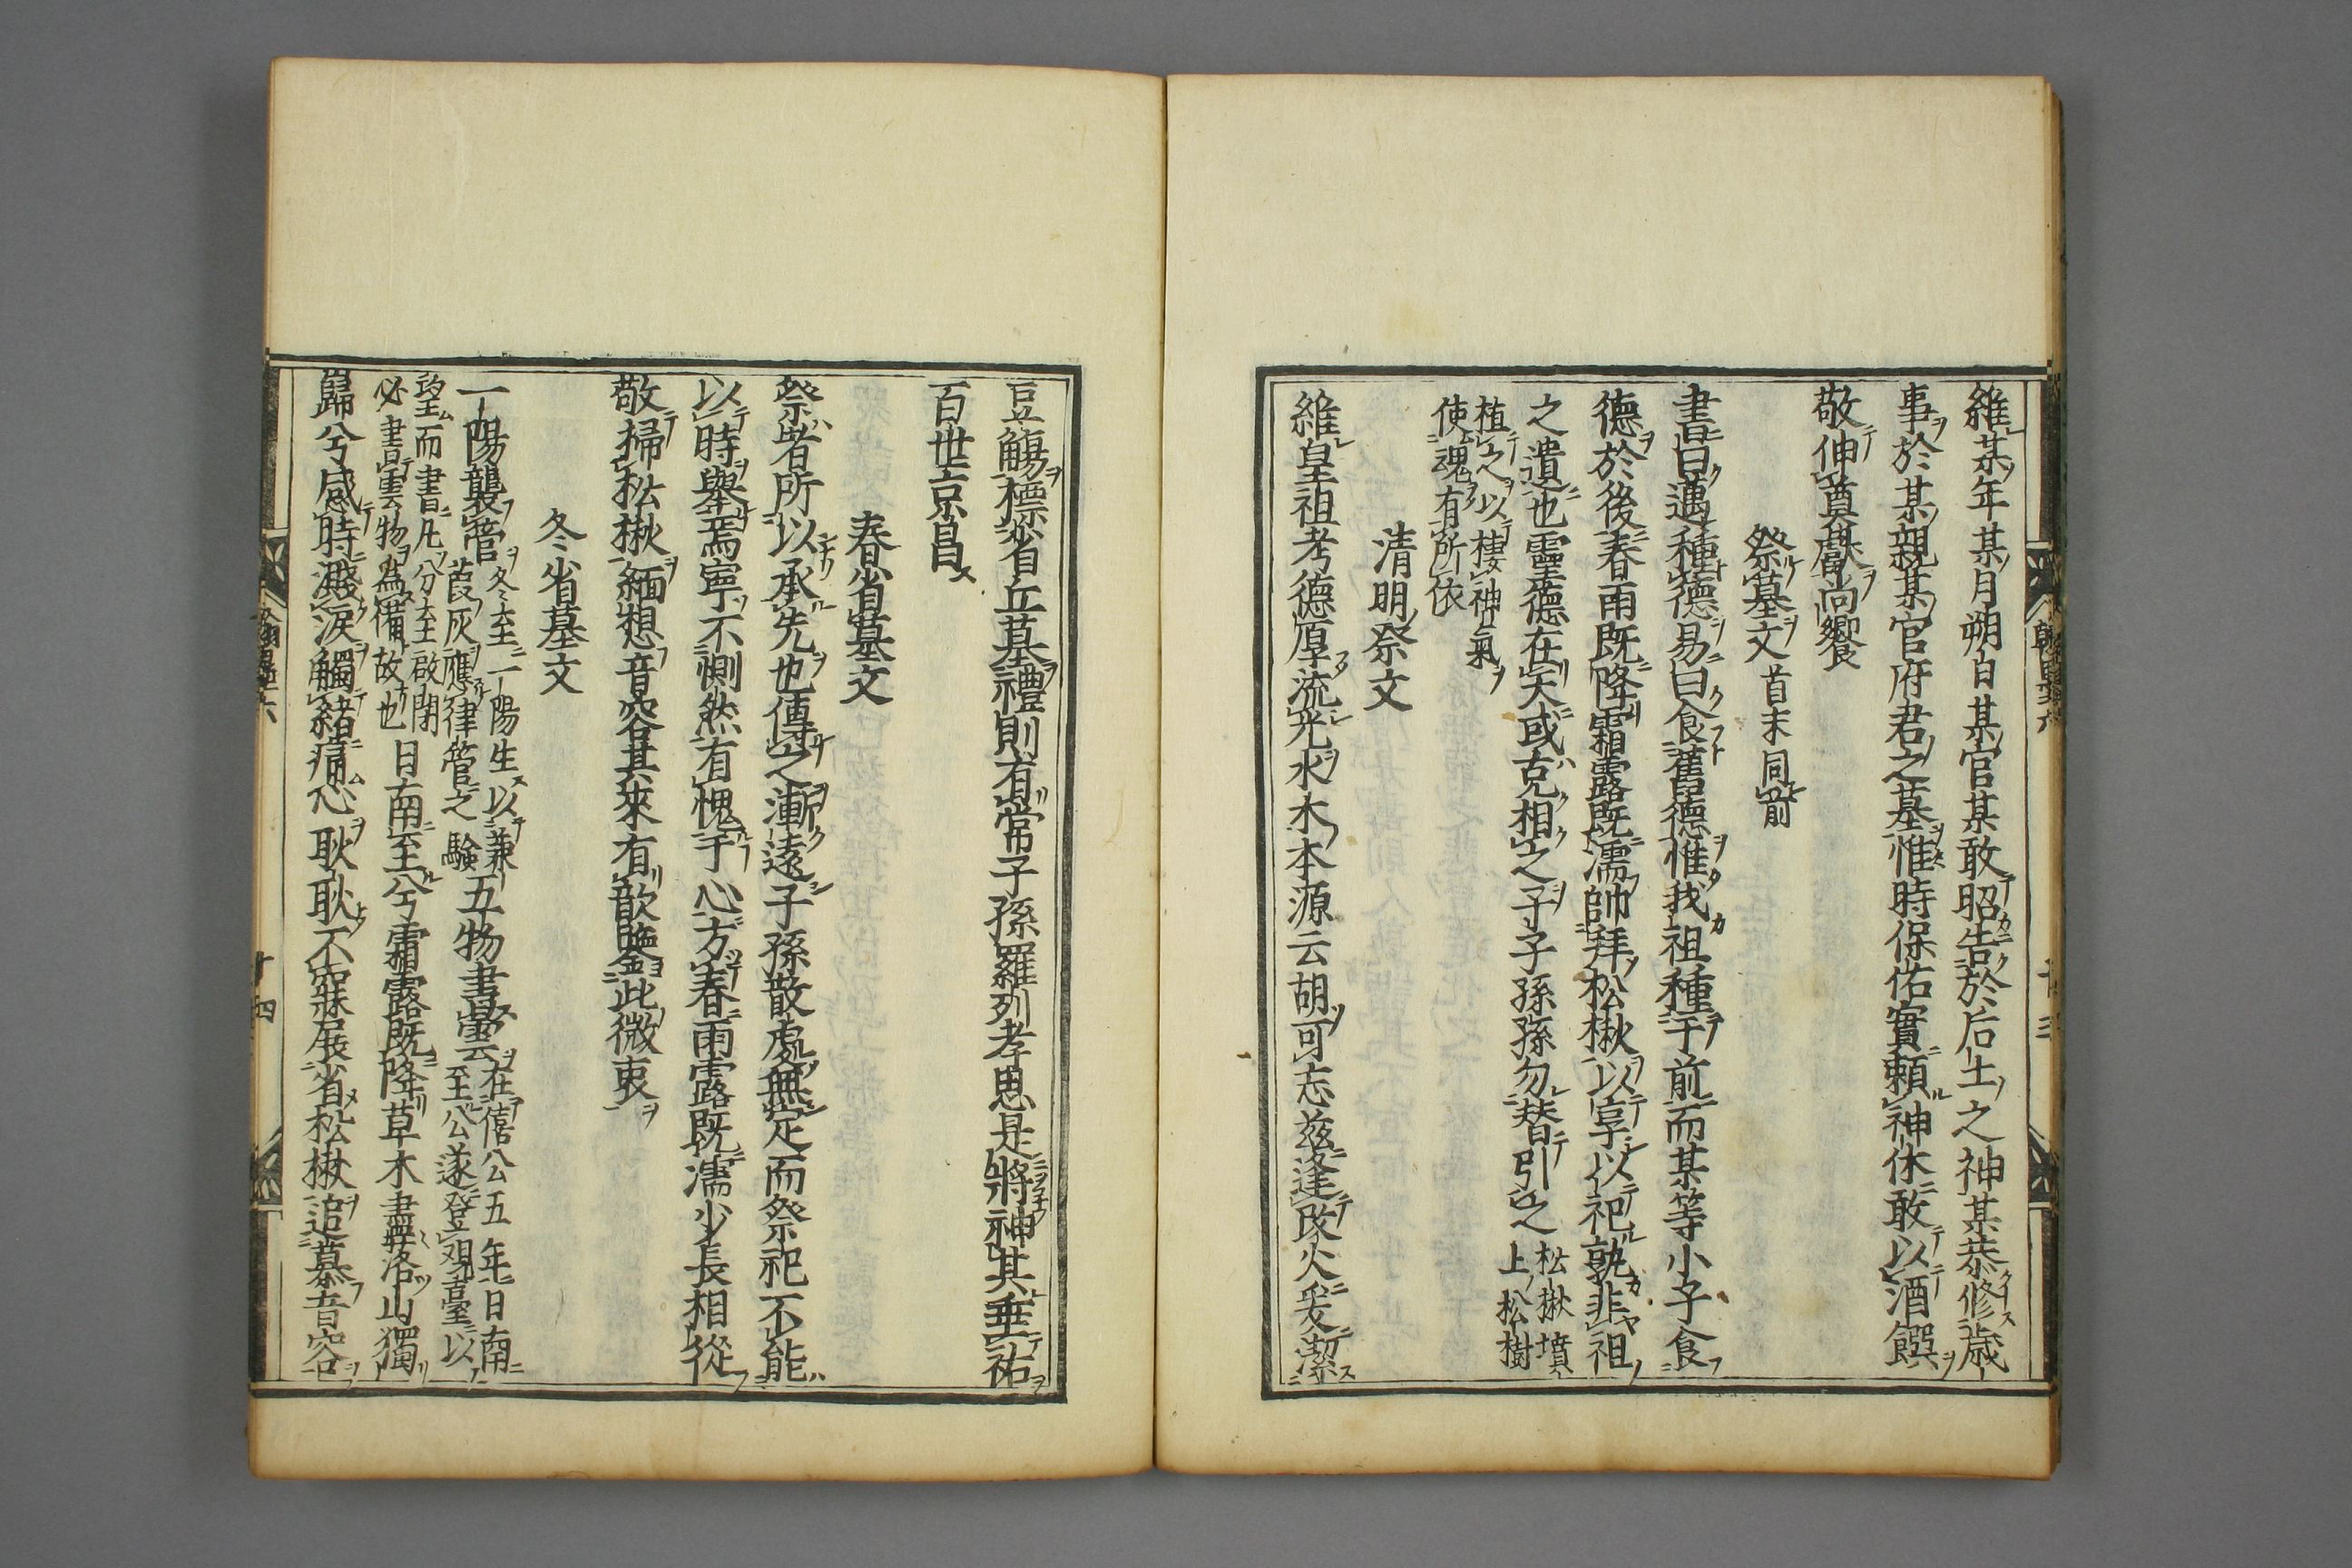 維某年某月朔日某官某敢昭告於后土之神某恭修歲
事於某親某官府君之墓惟時保佑實賴神休敢以酒饌
敬伸奠獻尚饗
祭墓文首末同前
書曰邁種德易曰食舊德惟我祖種于前而某等小子食
德於後春雨既降霜露既濡帥拜松楸以享以祀孰非祖
之遺也靈德在天或克相之子子孫孫勿替引之
松楸墳
上松樹
植之以棲神氣
使魂有所依
清明祭文
維皇祖考德厚流光水木本源云胡可忘茲逢改火爰潔
豆觴標省丘墓禮則有常子孫羅列孝思是將神其垂祐
百世京昌
春省墓文
祭者所以承先也傳之漸遠子孫散處無定而祭祀不能
以時舉焉寧不惻然有愧于心方春雨露既濡少長相從
敬掃松楸緬想音容其來有歆鑒此微衷
冬省墓文
一陽襲管
冬至一陽生以兼
葭灰應律管之驗
五物書雲
在僖公五年日南
至公遂登觀臺以
望而書凡分至啟閉
必書雲物為備故也
日南至兮霜露既降草木盡兮洛山獨
歸兮感時濺淚觸緒痛心耿耿不寐展省松楸追慕音容
十四